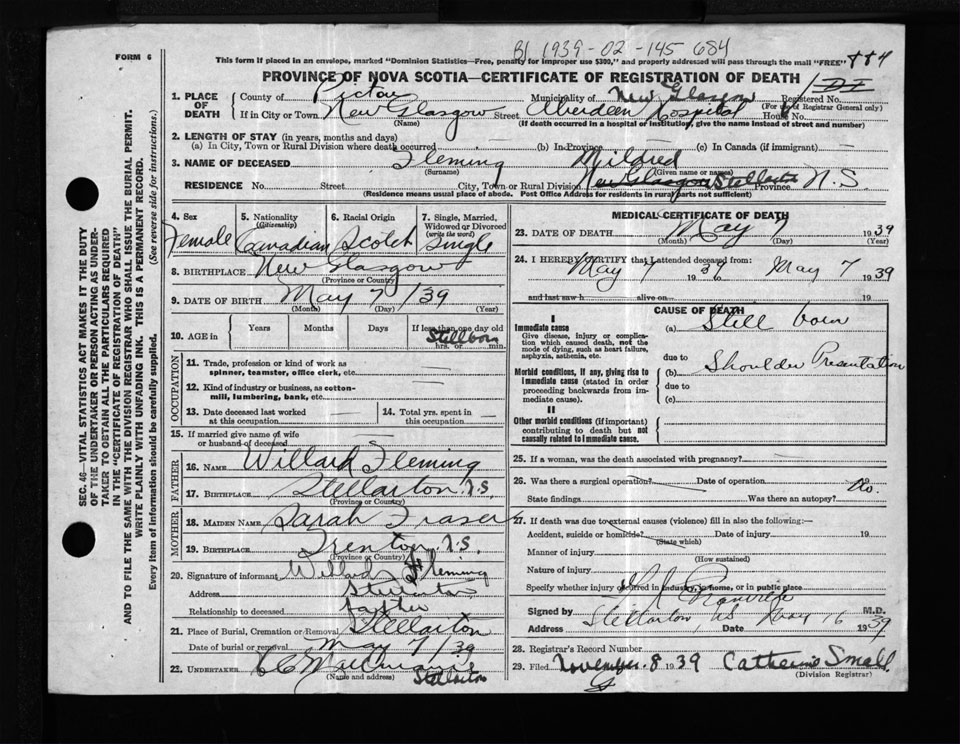 B1 1939-02-145 684
FORM 6
This form if placed in an envelope, marked "Dominion Statistics—Free, penalty for improper use $300," and properly addressed will pass through the mail "FREE"
PROVINCE OF NOVA SCOTIA—CERTIFICATE OF REGISTRATION OF DEATH
1. PLACE OF DEATH
County of Pictou Municipality of New Glasgow Registered No.
(For use of Registrar General only)
If in City or Town New Glasgow Street Aberdeen Hospital House No.
(Name) (If death occurred in a hospital or institution, give the name instead of street and number)
2. LENGTH OF STAY (in years, months and days)
(a) In City, Town or Rural Division where death occurred (b) In Province (c) In Canada (if immigrant)
3. NAME OF DECEASED Fleming Mildred
(Surname) (Given name or names)
RESIDENCE No. Street City, Town or Rural Division New Glasgow Stellarton Province N.S
(Residence means usual place of abode. Post Office Address for residents in rural parts not sufficient)
4. Sex
Female
5. Nationality
(Citizenship)
Canadian
6. Racial Origin
Scotch
7. Single, Married,
Widowed or Divorced
(write the word)
Single
8. BIRTHPLACE New Glasgow
(Province or Country)
9. DATE OF BIRTH May 7 /39
(Month) (Day) (Year)
10. AGE in Years Months Days If less than one day old
Stillborn
hrs. or min.
OCCUPATION
11. Trade, profession or kind of work as
spinner, teamster, office clerk, etc.
12. Kind of industry or business, as cotton-
mill, lumbering, bank, etc.
13. Date deceased last worked
at this occupation
14. Total yrs. spent in
this occupation
15. If married give name of wife
or husband of deceased
FATHER
16. NAME Willard Fleming
17. BIRTHPLACE Stellarton N.S.
(Province or Country)
MOTHER
18. MAIDEN NAME Sarah Fraser
19. BIRTHPLACE Trenton N.S.
(Province or Country)
20. Signature of informant Willard Fleming
Address Stellarton
Relationship to deceased father
21. Place of Burial, Cremation or Removal Stellarton
Date of burial or removal May 7/39
22. UNDERTAKER
(Name and address) Stellarton
MEDICAL CERTIFICATE OF DEATH
23. DATE OF DEATH May 7 1939
(Month) (Day) (Year)
24. I HEREBY CERTIFY that I attended deceased from:
May 7 1939 to May 7 1939
and last saw h alive on 19
CAUSE OF DEATH
I
Immediate cause
Give disease, injury or complica-
tion which caused death, not the
mode of dying, such as heart failure,
asphyxia, asthenia, etc.
(a) Still born
due to
Morbid conditions, if any, giving rise to
immediate cause (stated in order
proceeding backwards from im-
mediate cause).
(b) Shoulder Presentation
due to
(c)
II
Other morbid conditions (if important)
contributing to death but not
causally related to immediate cause.
25. If a woman, was the death associated with pregnancy?
26. Was there a surgical operation? Date of operation No.
State findings Was there an autopsy?
27. If death was due to external causes (violence) fill in also the following:—
Accident, suicide or homicide? Date of injury 19
(State which)
Manner of injury
(How sustained)
Nature of injury
Specify whether injury occurred in industry, in home, or in public place
Signed by M.D.
Address Stellarton, NS Date May 16 1939
28. Registrar's Record Number
29. Filed November 8 1939 Catherine Small
(Division Registrar)
SEC. 46—VITAL STATISTICS ACT MAKES IT THE DUTY
OF THE UNDERTAKER OR PERSON ACTING AS UNDER-
TAKER TO OBTAIN ALL THE PARTICULARS REQUIRED
IN THE "CERTIFICATE OF REGISTRATION OF DEATH"
AND TO FILE THE SAME WITH THE DIVISION REGISTRAR WHO SHALL ISSUE THE BURIAL PERMIT.
WRITE PLAINLY WITH UNFADING INK. THIS IS A PERMANENT RECORD.
Every item of information should be carefully supplied. (See reverse side for instructions.)